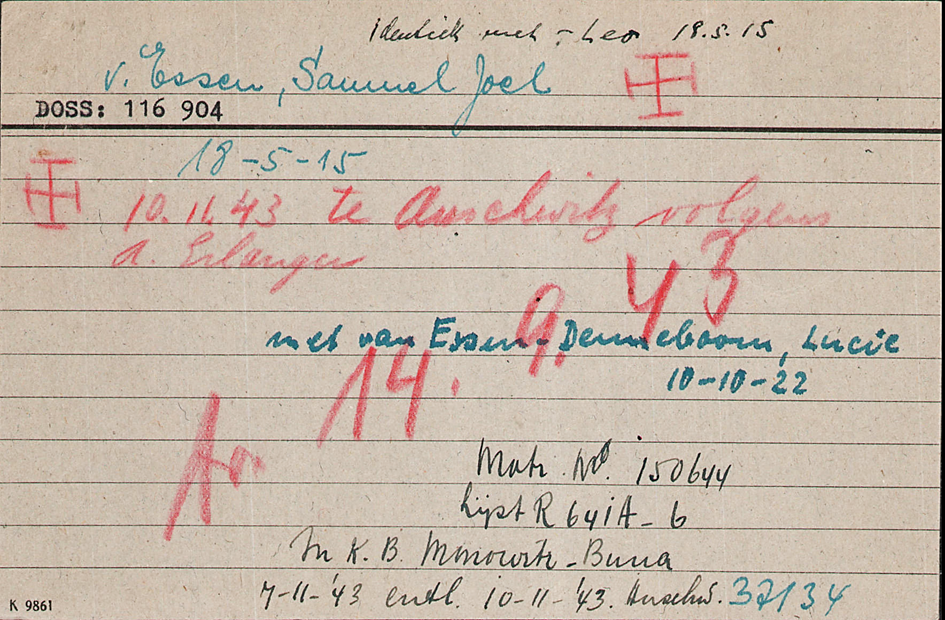 identiek met - Leo 18.5.15
v. Essen, Samuel Joel
DOSS: 116 904
18-5-15
10.11.43 te Auschwitz volgens
A. Erlanger
met van Essen-Denneboom, Lucie
10-10-22
tr. 14. 9. 43
Matr. No. 150644
Lijst R 641A-6
In K.B. Monowitz-Buna
7-11-'43 entl. 10-11-'43. Auschw. 37134
K 9861